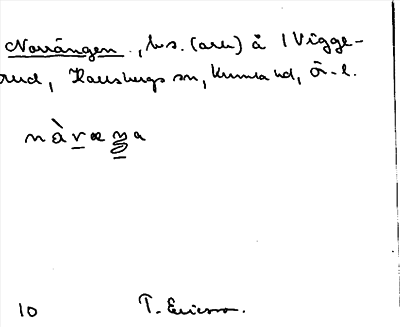 Norrängen, bs. (arr) å 1 Vigge-
rud, Hallsbergs sn, Kumla hd, Ö-l.
nàræŋa
10 T. Ericsson.